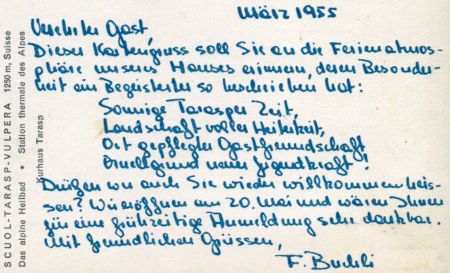 März 1955
Verehrter Gast,
Dieser Kartengruss soll Sie an die Ferienatmos-
phäre unseres Hauses erinnern, deren Besonder-
heit ein Begeisterter so beschrieben hat:
Sonnige Tarasper Zeit,
Landschaft voller Heiterkeit,
Ort gepflegter Gastfreundschaft
Quellgrund neuer Jugendkraft!
Dürfen wir auch Sie wieder willkommen heis-
sen? Wir eröffnen am 20. Mai und wären Ihnen
für eine frühzeitige Anmeldung sehr dankbar.
Mit freundlichen Grüssen,
F. Buchli
SCUOL-TARASP-VULPERA 1250 m, Suisse
Das alpine Heilbad • Station thermale des Alpes
Kurhaus Tarasp